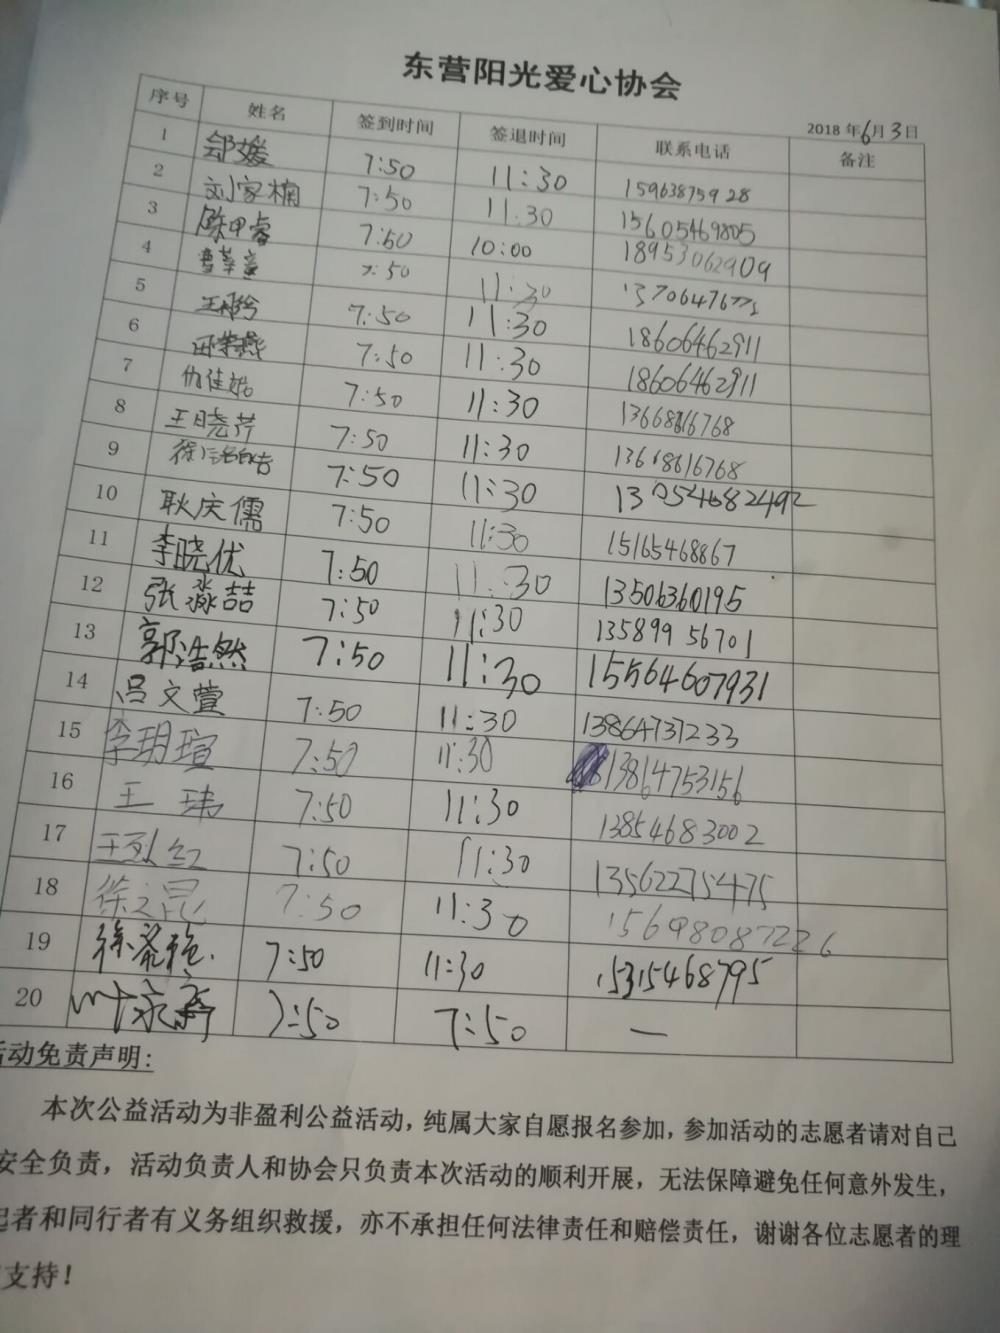 东营阳光爱心协会
2018 年6月3日
序号 姓名 签到时间 签退时间 联系电话 备注
1 7:50 11:30 15963875928
2 刘家楠 7:50 11:30 15605469805
3 陈甲睿 7:50 10:00 18953062909
4 7:50 11:30
5 7:50 11:30 18606462911
6 7:50 11:30 18606462911
7 仇佳妮 7:50 11:30 13668616768
8 王晓芹 7:50 11:30 13668616768
9 7:50 11:30
10 耿庆儒 7:50 11:30 15165468867
11 李晓优 7:50 11:30 13506360195
12 张淼喆 7:50 11:30 13589956701
13 郭浩然 7:50 11:30 15564607931
14 吕文萱 7:50 11:30 13864737233
15 李玥瑄 7:50 11:30 13864753156
16 王玮 7:50 11:30 13854683002
17 王烈红 7:50 11:30 135622754475
18 徐文昆 7:50 11:30 15698087226
19 7:50 11:30 15315468795
20 7:50 7:50 —
活动免责声明:
本次公益活动为非盈利公益活动，纯属大家自愿报名参加，参加活动的志愿者请对自己
安全负责，活动负责人和协会只负责本次活动的顺利开展，无法保障避免任何意外发生，
起者和同行者有义务组织救援，亦不承担任何法律责任和赔偿责任，谢谢各位志愿者的理
支持！